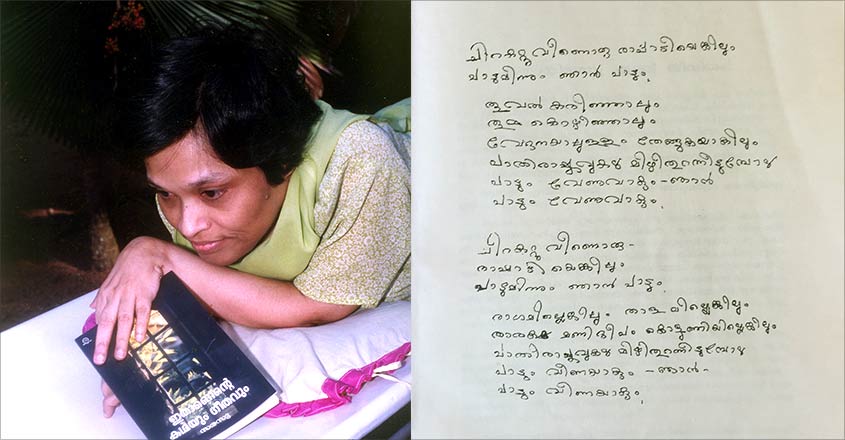 കഥയും ഗീതവും
ചിറകറ്റു വീണൊരു രാപ്പാടിയെങ്കിലും
പാടുമിന്നും ഞാൻ പാടും.
തൂവൽ കരിഞ്ഞാലും
കൊഴിഞ്ഞാലും
വേദനയാലുള്ളം തേങ്ങുകയാകിലും
പാതിരാപ്പൂവുകൾ മിഴിതുറന്നീടുമ്പോൾ
പാടും വേണുവാകും - ഞാൻ
പാടും വേണുവാകും.
ചിറകറ്റു വീണൊരു -
രാപ്പാടിയെങ്കിലും
പാടുമിന്നും ഞാൻ പാടും.
രാഗമില്ലെങ്കിലും താളമില്ലെങ്കിലും
മണിദീപം കൊളുത്തിയില്ലെങ്കിലും
പാതിരാപ്പൂവുകൾ മിഴിതുറന്നീടുമ്പോൾ
പാടും വീണയാകും - ഞാൻ -
പാടും വീണയാകും.